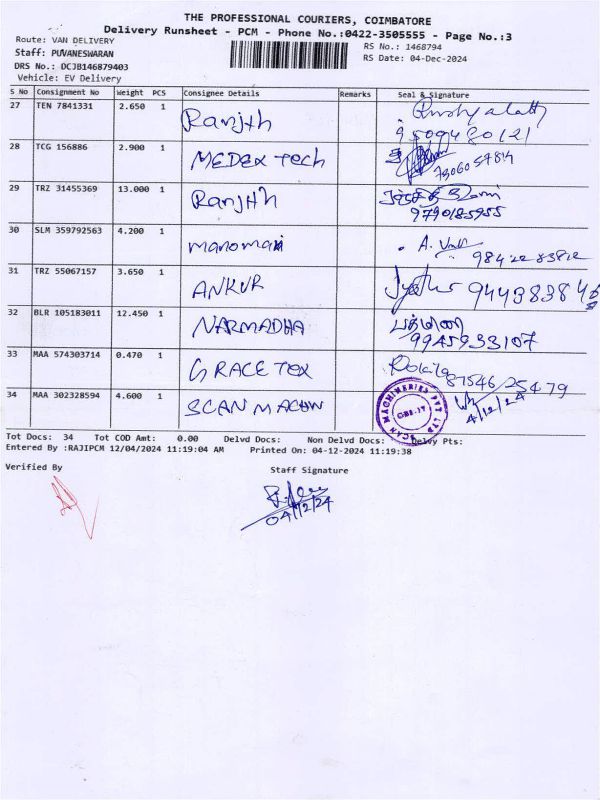 THE PROFESSIONAL COURIERS, COIMBATORE
Delivery Runsheet - PCM - Phone No.:0422-3505555 - Page No.:3
Route: VAN DELIVERY RS No.: 1468794
Staff: PUVANESWARAN RS Date: 04-Dec-2024
DRS No.: DCJB146879403
Vehicle: EV Delivery
S No Consignment No Weight PCS Consignee Details Remarks Seal & Signature
27 TEN 7841331 2.650 1 Ranjith
9509480121
28 TCG 156886 2.900 1 MEDEX Tech
29 TRZ 31455369 13.000 1 Ranjith
9790185955
30 SLM 359792563 4.200 1 manomani A.
31 TRZ 55067157 3.650 1 ANKUR 944383846
32 BLR 105183011 12.450 1 NARMADHA
9945933107
33 MAA 574303714 0.470 1 GRACE Tex
8754625479
34 MAA 302328594 4.600 1 SCAN 4/12/24
SCAN MACHINERIES PVT LTD
CBE-17
Tot Docs: 34 Tot COD Amt: 0.00 Delvd Docs: Non Delvd Docs: Delvy Pts:
Entered By :RAJIPCM 12/04/2024 11:19:04 AM Printed On: 04-12-2024 11:19:38
Verified By Staff Signature
04/12/24